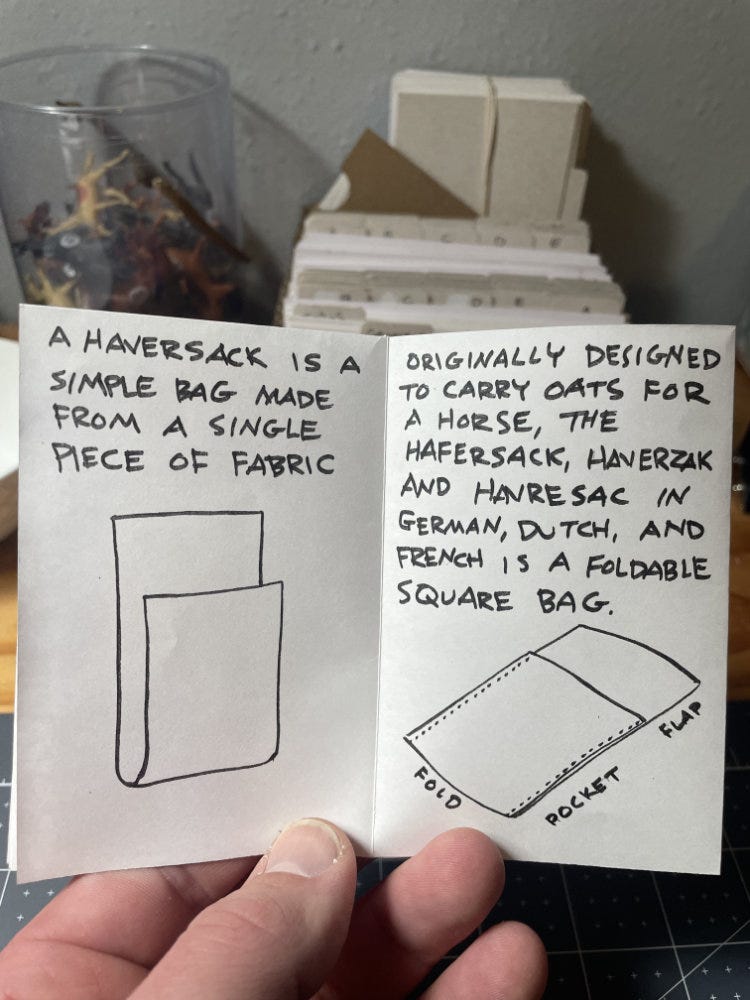 A HAVERSACK IS A
SIMPLE BAG MADE
FROM A SINGLE
PIECE OF FABRIC
ORIGINALLY DESIGNED
TO CARRY OATS FOR
A HORSE, THE
HAFERSACK, HAVERZAK
AND HAVRESAC IN
GERMAN, DUTCH, AND
FRENCH IS A FOLDABLE
SQUARE BAG.
FOLD
POCKET
FLAP